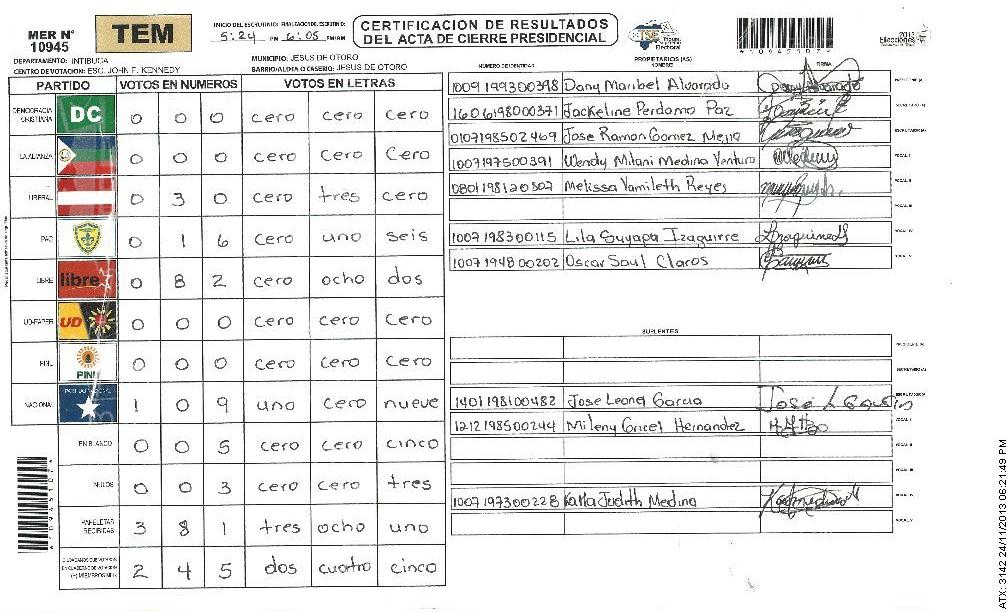 MER N°
10945
TEM
INICIO DEL ESCRUTINIO: FINALIZACION DEL ESCRUTINIO:
5:24 PM 6:05 PM/AM
CERTIFICACION DE RESULTADOS
DEL ACTA DE CIERRE PRESIDENCIAL
TSE
Tribunal Supremo Electoral
2013
Elecciones
DEPARTAMENTO: INTIBUCA
MUNICIPIO: JESUS DE OTORO
CENTRO DE VOTACION: ESC. JOHN F. KENNEDY
BARRIO/ALDEA O CASERIO: JESUS DE OTORO
PARTIDO VOTOS EN NUMEROS VOTOS EN LETRAS
DEMOCRACIA CRISTIANA DC 0 0 0 cero cero cero
LA ALIANZA 0 0 0 cero cero cero
LIBERAL 0 3 0 cero tres cero
PAC 0 1 6 cero uno seis
LIBRE libre 0 8 2 cero ocho dos
UD-FAPER UD 0 0 0 cero cero cero
PINU PINU 0 0 0 cero cero cero
NACIONAL PARTIDO NACIONAL 1 0 9 uno cero nueve
EN BLANCO 0 0 5 cero cero cinco
NULOS 0 0 3 cero cero tres
PAPELETAS RECIBIDAS 3 8 1 tres ocho uno
CIUDADANOS QUE VOTARON EN CUADERNO DE VOTACION (+) MIEMBROS MER 2 4 5 dos cuatro cinco
PROPIETARIOS (AS)
NUMERO DE IDENTIDAD NOMBRE FIRMA
1009199300398 Dany Maribel Alvarado
1606198000371 Jackeline Perdomo Paz
0107198502469 Jose Ramon Gomez Mejia
1007197500391 Wendy Milani Medina Ventura
0801198120307 Melissa Yamileth Reyes
1007198300115 Lila Suyapa Izaguirre
1007194800202 Oscar Saul Claros
SUPLENTES
1401198100482 Jose Leong Garcia
1212198500244 Mileny Gricel Hernandez
1007197300228 Katia Judith Medina
ATX: 3142 24/11/2013 06:21:49 PM